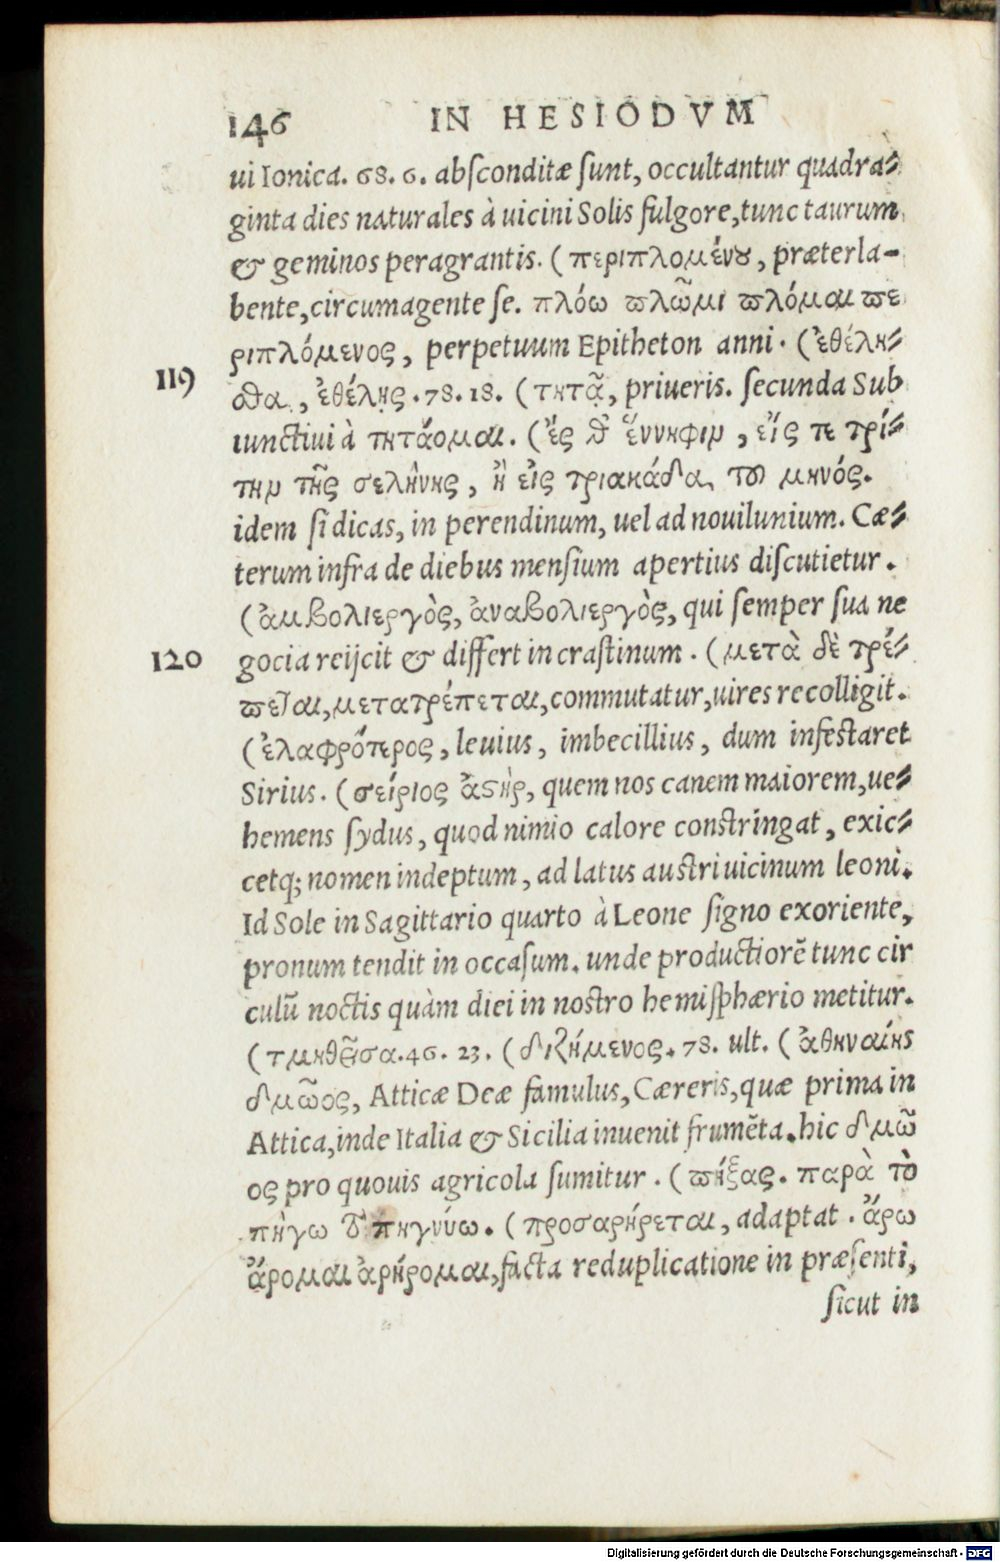 146 IN HESIODVM
ui Ionica. 68. 6. absconditæ sunt, occultantur quadra-
ginta dies naturales à uicini Solis fulgore, tunc taurum
& geminos peragrantis. (περιπλομένου, præterla-
bente, circumagente se. πλόω πλῶμι πλόμαι πε
ριπλόμενος, perpetuum Epitheton anni. (ἐθέλη-
119
σθα, ἐθέλῃς. 78. 18. (τητᾷ, priueris. secunda Sub
iunctiui à τητάομαι. (ἔς τ' ἔννηφιν, εἴς τε τρί-
την τῆς σελήνης, ἢ εἰς τριακάδα τοῦ μηνός.
idem si dicas, in perendinum, uel ad nouilunium. Cæ-
terum infra de diebus mensium apertius discutietur.
(ἀμβολιεργὸς, ἀναβολιεργὸς, qui semper sua ne
120
gocia reijcit & differt in crastinum. (μετὰ δὲ τρέ-
πεται, μετατρέπεται, commutatur, uires recolligit.
(ἐλαφρότερος, leuius, imbecillius, dum infestaret
Sirius. (σείριος ἀστὴρ, quem nos canem maiorem, ue-
hemens sydus, quod nimio calore constringat, exic-
cetq; nomen indeptum, ad latus austri uicinum leoni.
Id Sole in Sagittario quarto à Leone signo exoriente,
pronum tendit in occasum. unde productiorẽ tunc cir
culũ noctis quàm diei in nostro hemisphærio metitur.
(τμηθεῖσα. 46. 23. (διζήμενος. 78. ult. (ἀθηναίης
δμῶος, Atticæ Deæ famulus, Cæreris, quæ prima in
Attica, inde Italia & Sicilia inuenit frumẽta. hic δμῶ
ος pro quouis agricola sumitur. (πήξας. παρὰ τὸ
πήγω τὸ πηγνύω. (προσαρήρεται, adaptat. ἄρω
ἄρομαι ἀρήρομαι, facta reduplicatione in præsenti,
sicut in
Digitalisierung gefördert durch die Deutsche Forschungsgemeinschaft - DFG